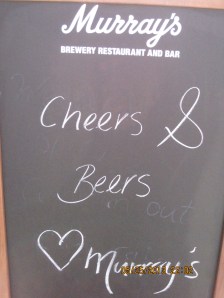 Murray's
BREWERY RESTAURANT AND BAR
Cheers &
Beers
♡ Murray's